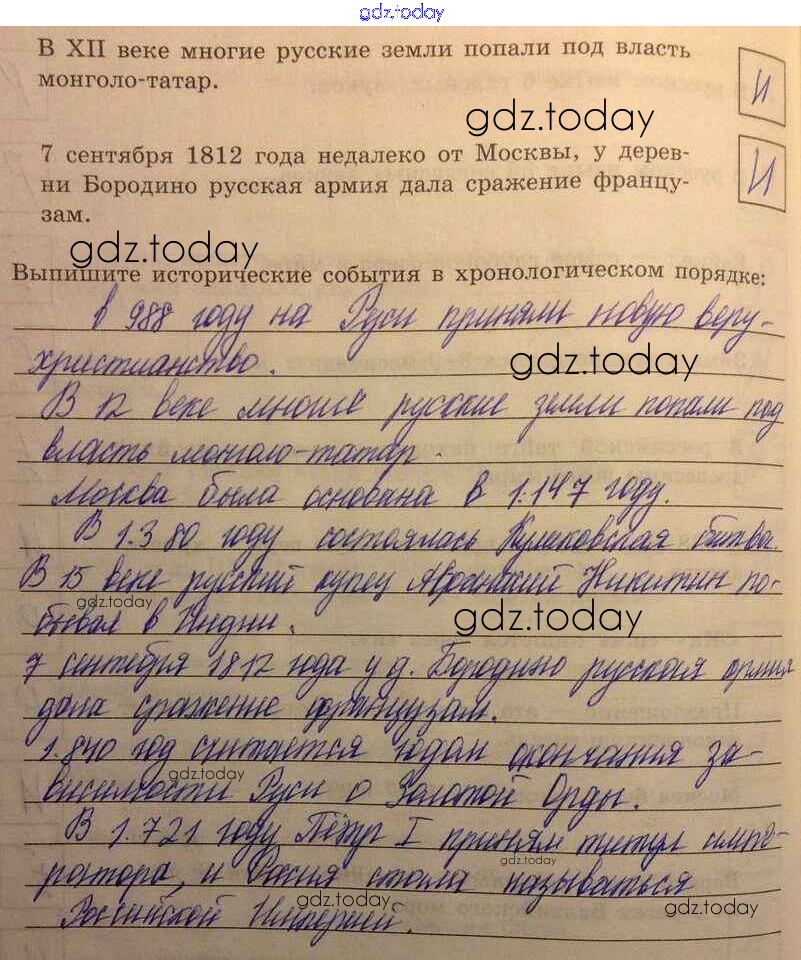 gdz.today
В XII веке многие русские земли попали под власть
монголо-татар.
И
gdz.today
7 сентября 1812 года недалеко от Москвы, у дерев-
ни Бородино русская армия дала сражение францу-
зам.
И
gdz.today
Выпишите исторические события в хронологическом порядке:
в 988 году на Руси приняли новую веру-
христианство.
gdz.today
В 12 веке многие русские земли попали под
власть монголо-татар.
Москва была основана в 1.147 году.
В 1.380 году состоялась Куликовская битва.
В 15 веке русский купец Афанасий Никитин по-
gdz.today
бывал в Индии.
gdz.today
7 сентября 1812 года у д. Бородино русская армия
дала сражение французам.
1.840 год считается годом окончания за-
gdz.today
висимости Руси о Золотой Орды.
В 1.721 году Пётр I принял титул импе-
gdz.today
ратора, и Россия стала называться
gdz.today
Российской Империей.